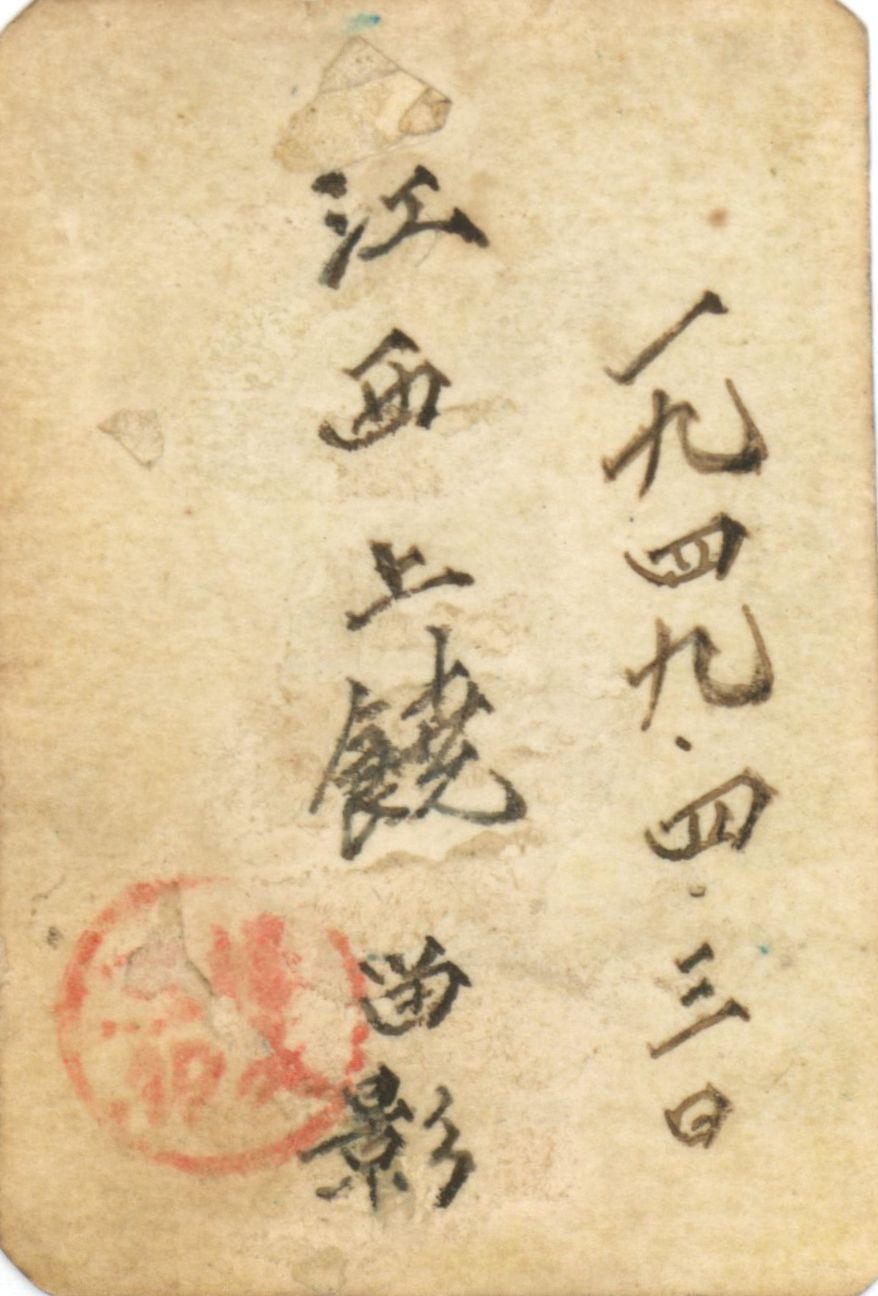 一九四九.四.三日
江西上饒畄影